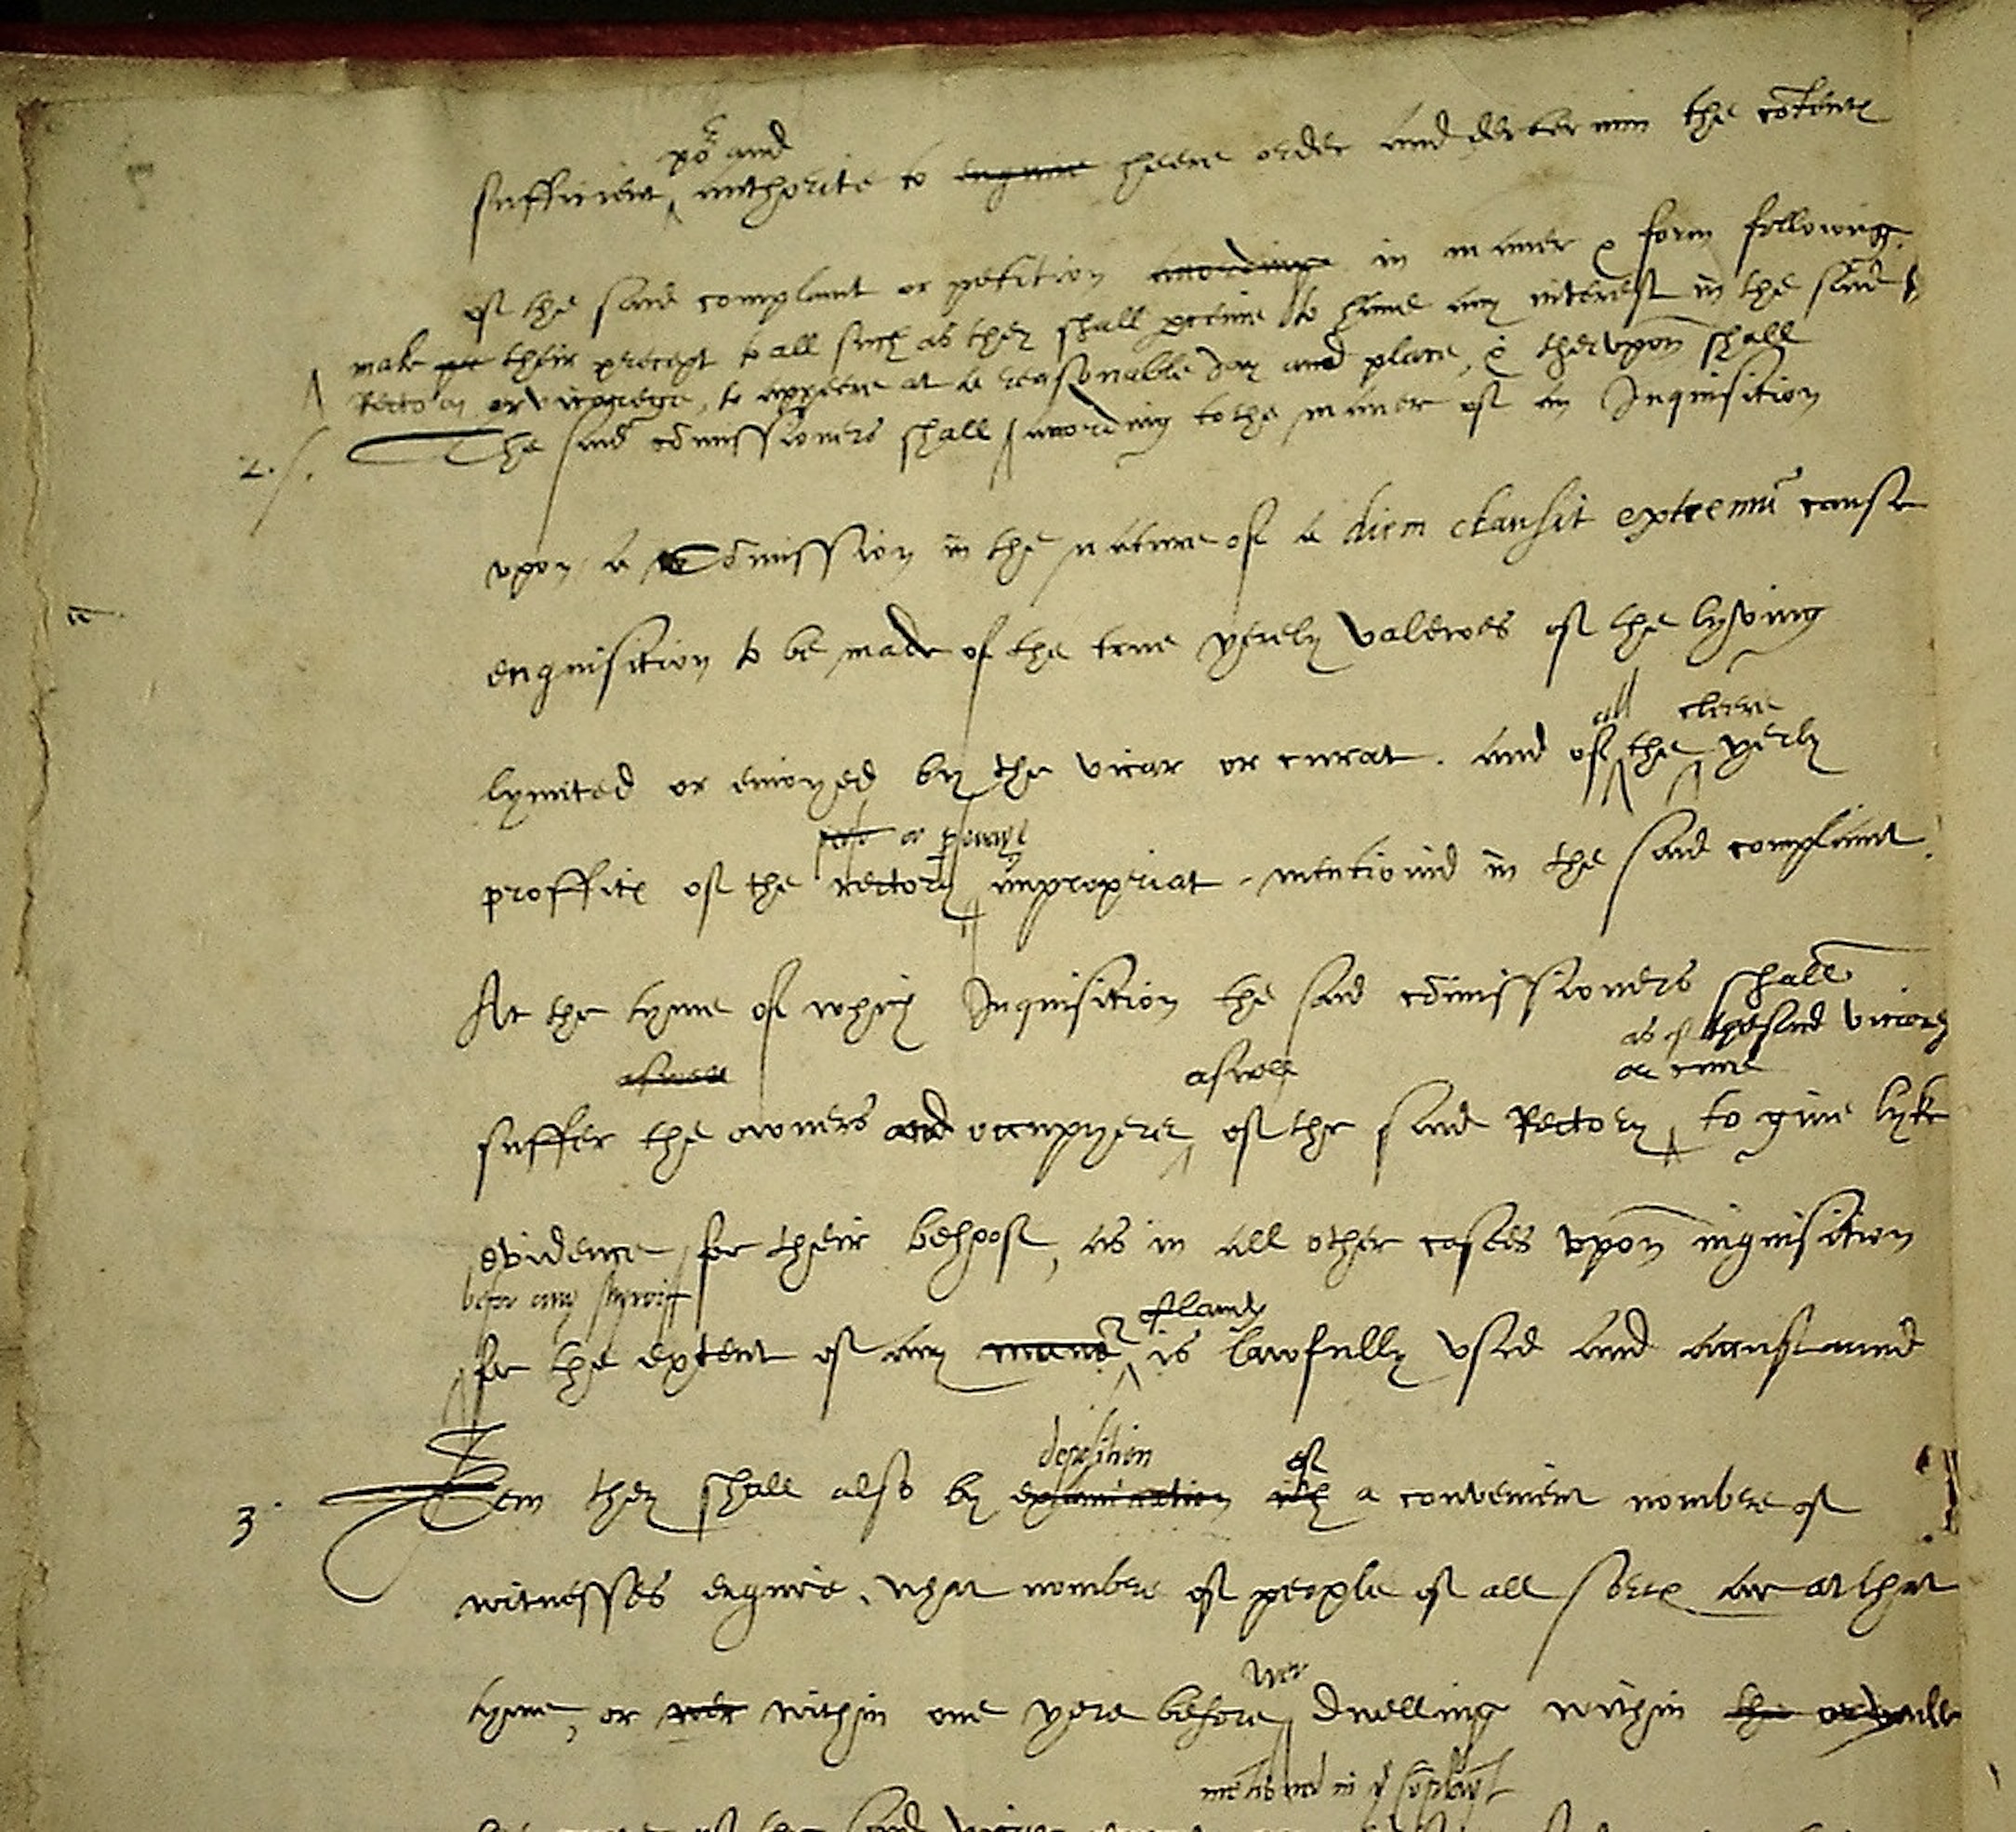 por and
sufficient authorite to enquire heere order and determin the contents
of the said complaint or petition according in maner & form following.
make their precept to all such as they shall perceive to have any interest in the said
Rectory or vicarege, to appeere at a reasonable day and place, & therupon shall
2. The said comissioners shall according to the maner of an Inquisition
upon a Comission in the nature of a diem clausit extremum cause
enquisition to be made of the true yerely valewes of the lyving
all cleere
lymited or enioyed by the vicar or curat. and of the yerly
or personage
proffits of the rectory impropriat mentioned in the said complaint.
At the tyme of which Inquisition the said comissioners shall
as of the said vicary
aswell aswell or cure
suffer the owners and occupyers of the said Rectory to give lyke
evidence for their behoof, as in all other cases upon inquisition
before any shyreiff
of lands
for the extent of any maner is lawfully used and accustomed
deposition of
3. Item they shall also by examination a convenient nombre of
witnesses enquire, what nombre of people of all sorts ar at that
wer
tyme, or wer within one yere before dwelling within the
mentioned in ye complaynt